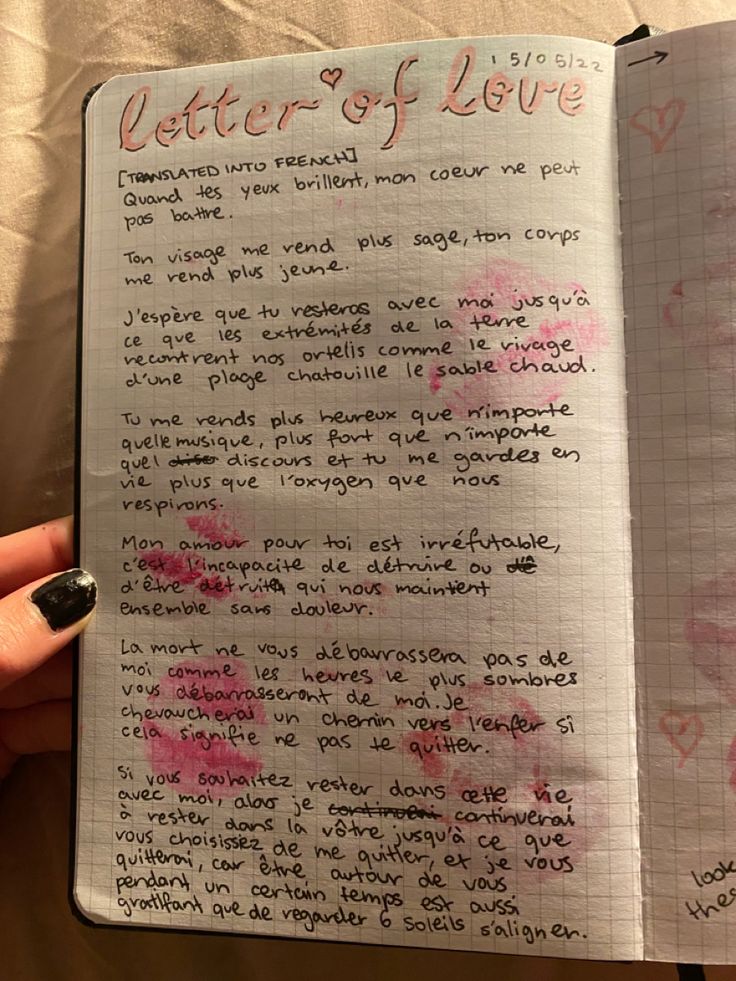 15/05/22
letter of love
[TRANSLATED INTO FRENCH]
Quand tes yeux brillent, mon coeur ne peut
pas battre.
Ton visage me rend plus sage, ton corps
me rend plus jeune.
J'espère que tu resteras avec moi jusqu'à
ce que les extrémités de la terre
recontrent nos ortelis comme le rivage
d'une plage chatouille le sable chaud.
Tu me rends plus heureux que n'importe
quelle musique, plus fort que n'importe
quel disco discours et tu me gardes en
vie plus que l'oxygen que nous
respirons.
Mon amour pour toi est irréfutable,
c'est l'incapacite de détruire ou dê
d'être détruit qui nous maintient
ensemble sans douleur.
La mort ne vous débarrassera pas de
moi comme les heures le plus sombres
vous débarrasseront de moi. Je
chevaucherai un chemin vers l'enfer si
cela signifie ne pas te quitter.
Si vous souhaitez rester dans cette vie
avec moi, alors je continuerai
à rester dans la vôtre jusqu'à ce que
vous choisissiez de me quitter, et je vous
quitterai, car être autour de vous
pendant un certain temps est aussi
gratifant que de regarder 6 soleils s'aligner.
→
look
thes